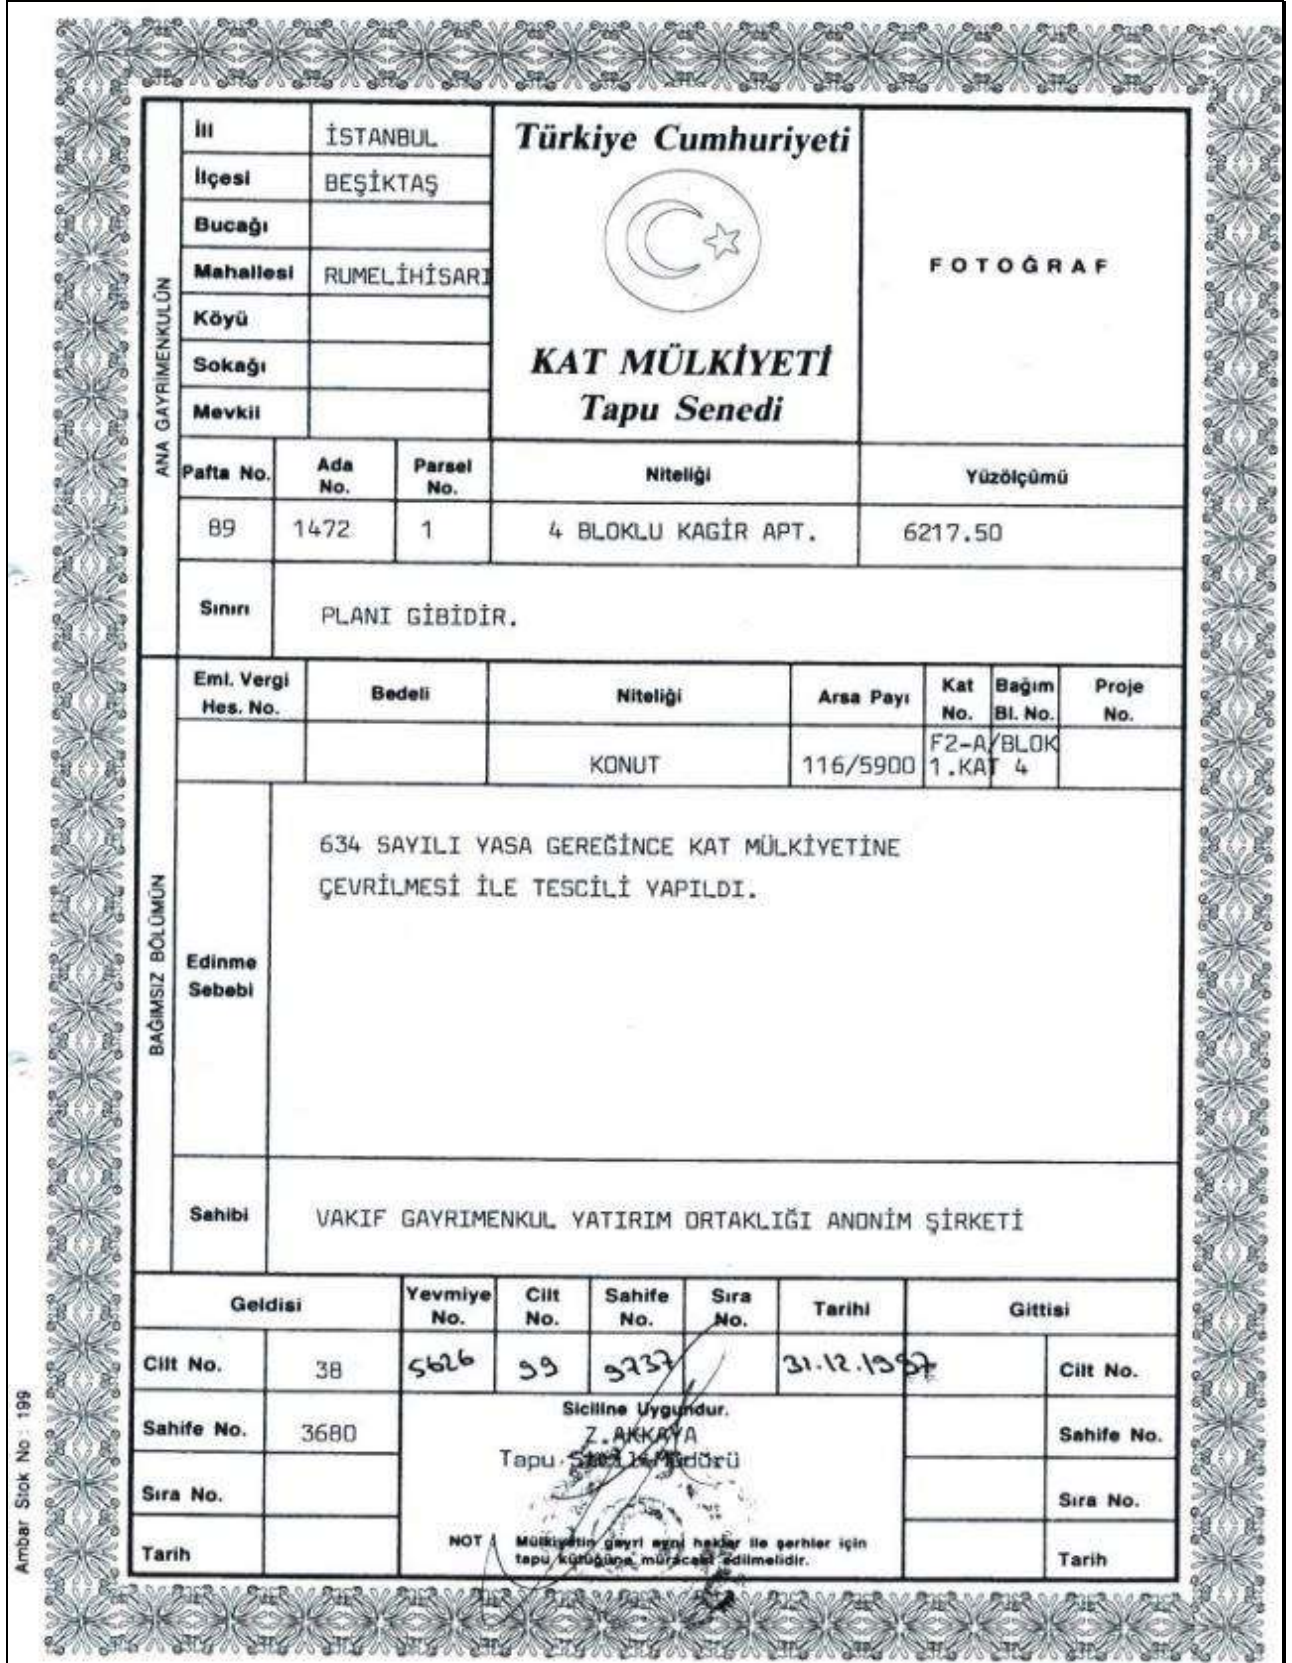 İli İSTANBUL
İlçesi BEŞİKTAŞ
Bucağı
Mahallesi RUMELİHİSARI
Köyü
Sokağı
Mevkii
Türkiye Cumhuriyeti
KAT MÜLKİYETİ
Tapu Senedi
FOTOĞRAF
ANA GAYRİMENKULÜN
Pafta No. Ada No. Parsel No. Niteliği Yüzölçümü
89 1472 1 4 BLOKLU KAGİR APT. 6217.50
Sınırı PLANI GİBİDİR.
BAĞIMSIZ BÖLÜMÜN
Eml. Vergi Hes. No. Bedeli Niteliği Arsa Payı Kat No. Bağım Bl. No. Proje No.
KONUT 116/5900 F2-A/BLOK
1.KAT 4
634 SAYILI YASA GEREĞİNCE KAT MÜLKİYETİNE
ÇEVRİLMESİ İLE TESCİLİ YAPILDI.
Edinme
Sebebi
Sahibi VAKIF GAYRIMENKUL YATIRIM ORTAKLIĞI ANONİM ŞİRKETİ
Geldisi Yevmiye No. Cilt No. Sahife No. Sıra No. Tarihi Gittisi
Cilt No. 38 5626 99 9737 31.12.1997 Cilt No.
Siciline Uygundur.
Sahife No. 3680 Z.AKKAYA Sahife No.
Tapu Sicili Müdürü
Sıra No. Sıra No.
NOT Mülkiyetin gayri ayni haklar ile şerhler için
tapu kütüğüne müracaat edilmelidir.
Tarih Tarih
Ambar Stok No : 199